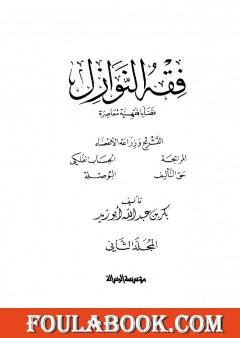 فقه النوازل
قضايا فقهية معاصرة
التشريح وزراعة الأعضاء
المرابحة الحساب الفلكي
حق التأليف البوصلة
تأليف
بكر بن عبد الله أبو زيد
المجلد الثاني
مؤسسة الرسالة
FOULABOOK.COM